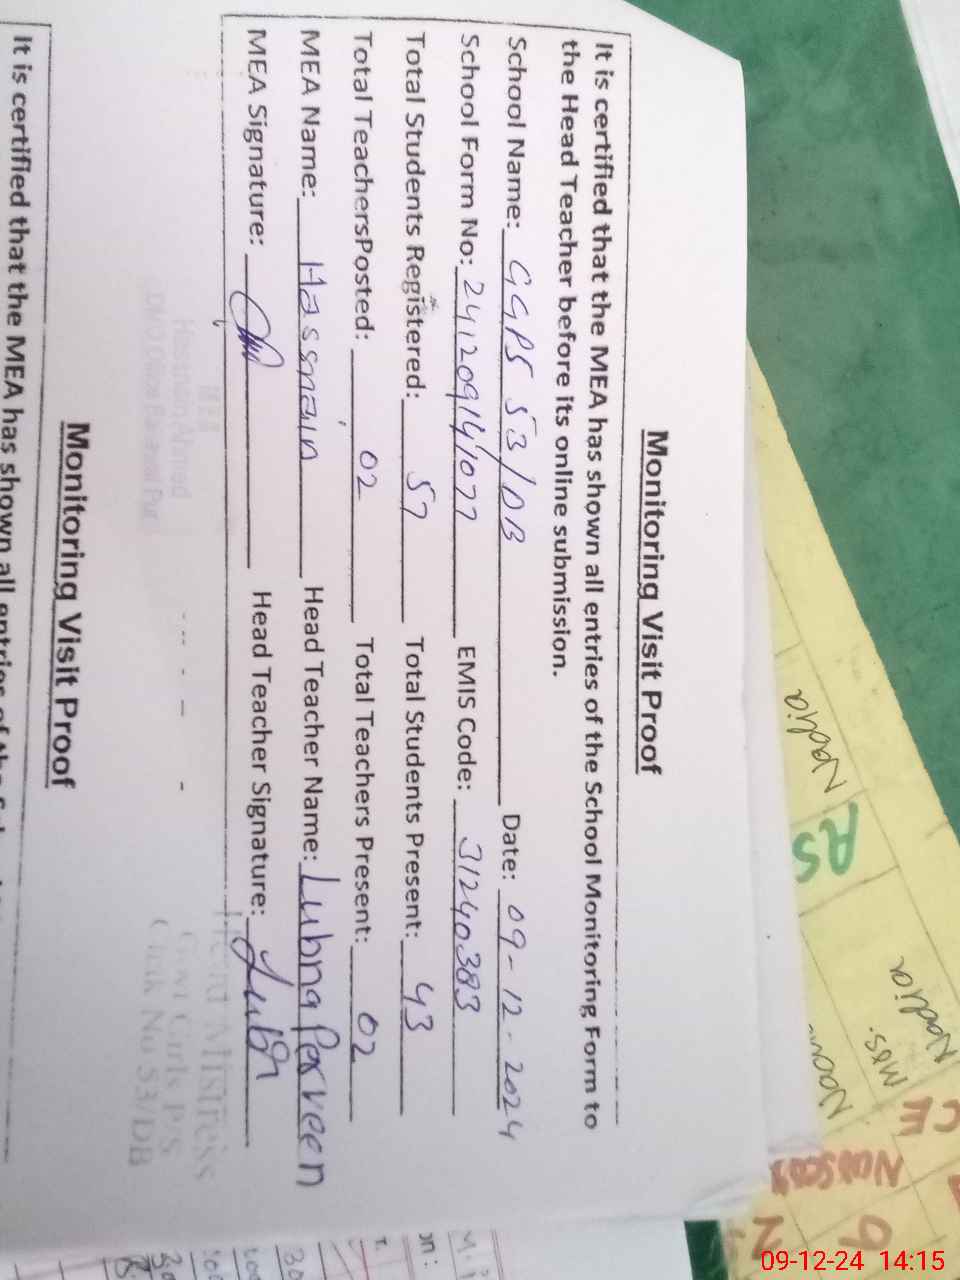 Monitoring Visit Proof
It is certified that the MEA has shown all entries of the School Monitoring Form to
the Head Teacher before its online submission.
School Name: GGPS 53/DB Date: 09-12-2024
School Form No: 241209141077 EMIS Code: 31240383
Total Students Registered: 57 Total Students Present: 43
Total TeachersPosted: 02 Total Teachers Present: 02
MEA Name: Hassnain Head Teacher Name: Lubna Perveen
MEA Signature: Head Teacher Signature: Lubn
MEA
Hassnain Ahmed
DMO Office Bahawal Pur
Head Mistress
Govt Girls P/S
Chak No 53/DB
Monitoring Visit Proof
It is certified that the MEA has shown all entries of the
Nadia
RS
Nadia
Mrs.
CE
N
09-12-24 14:15